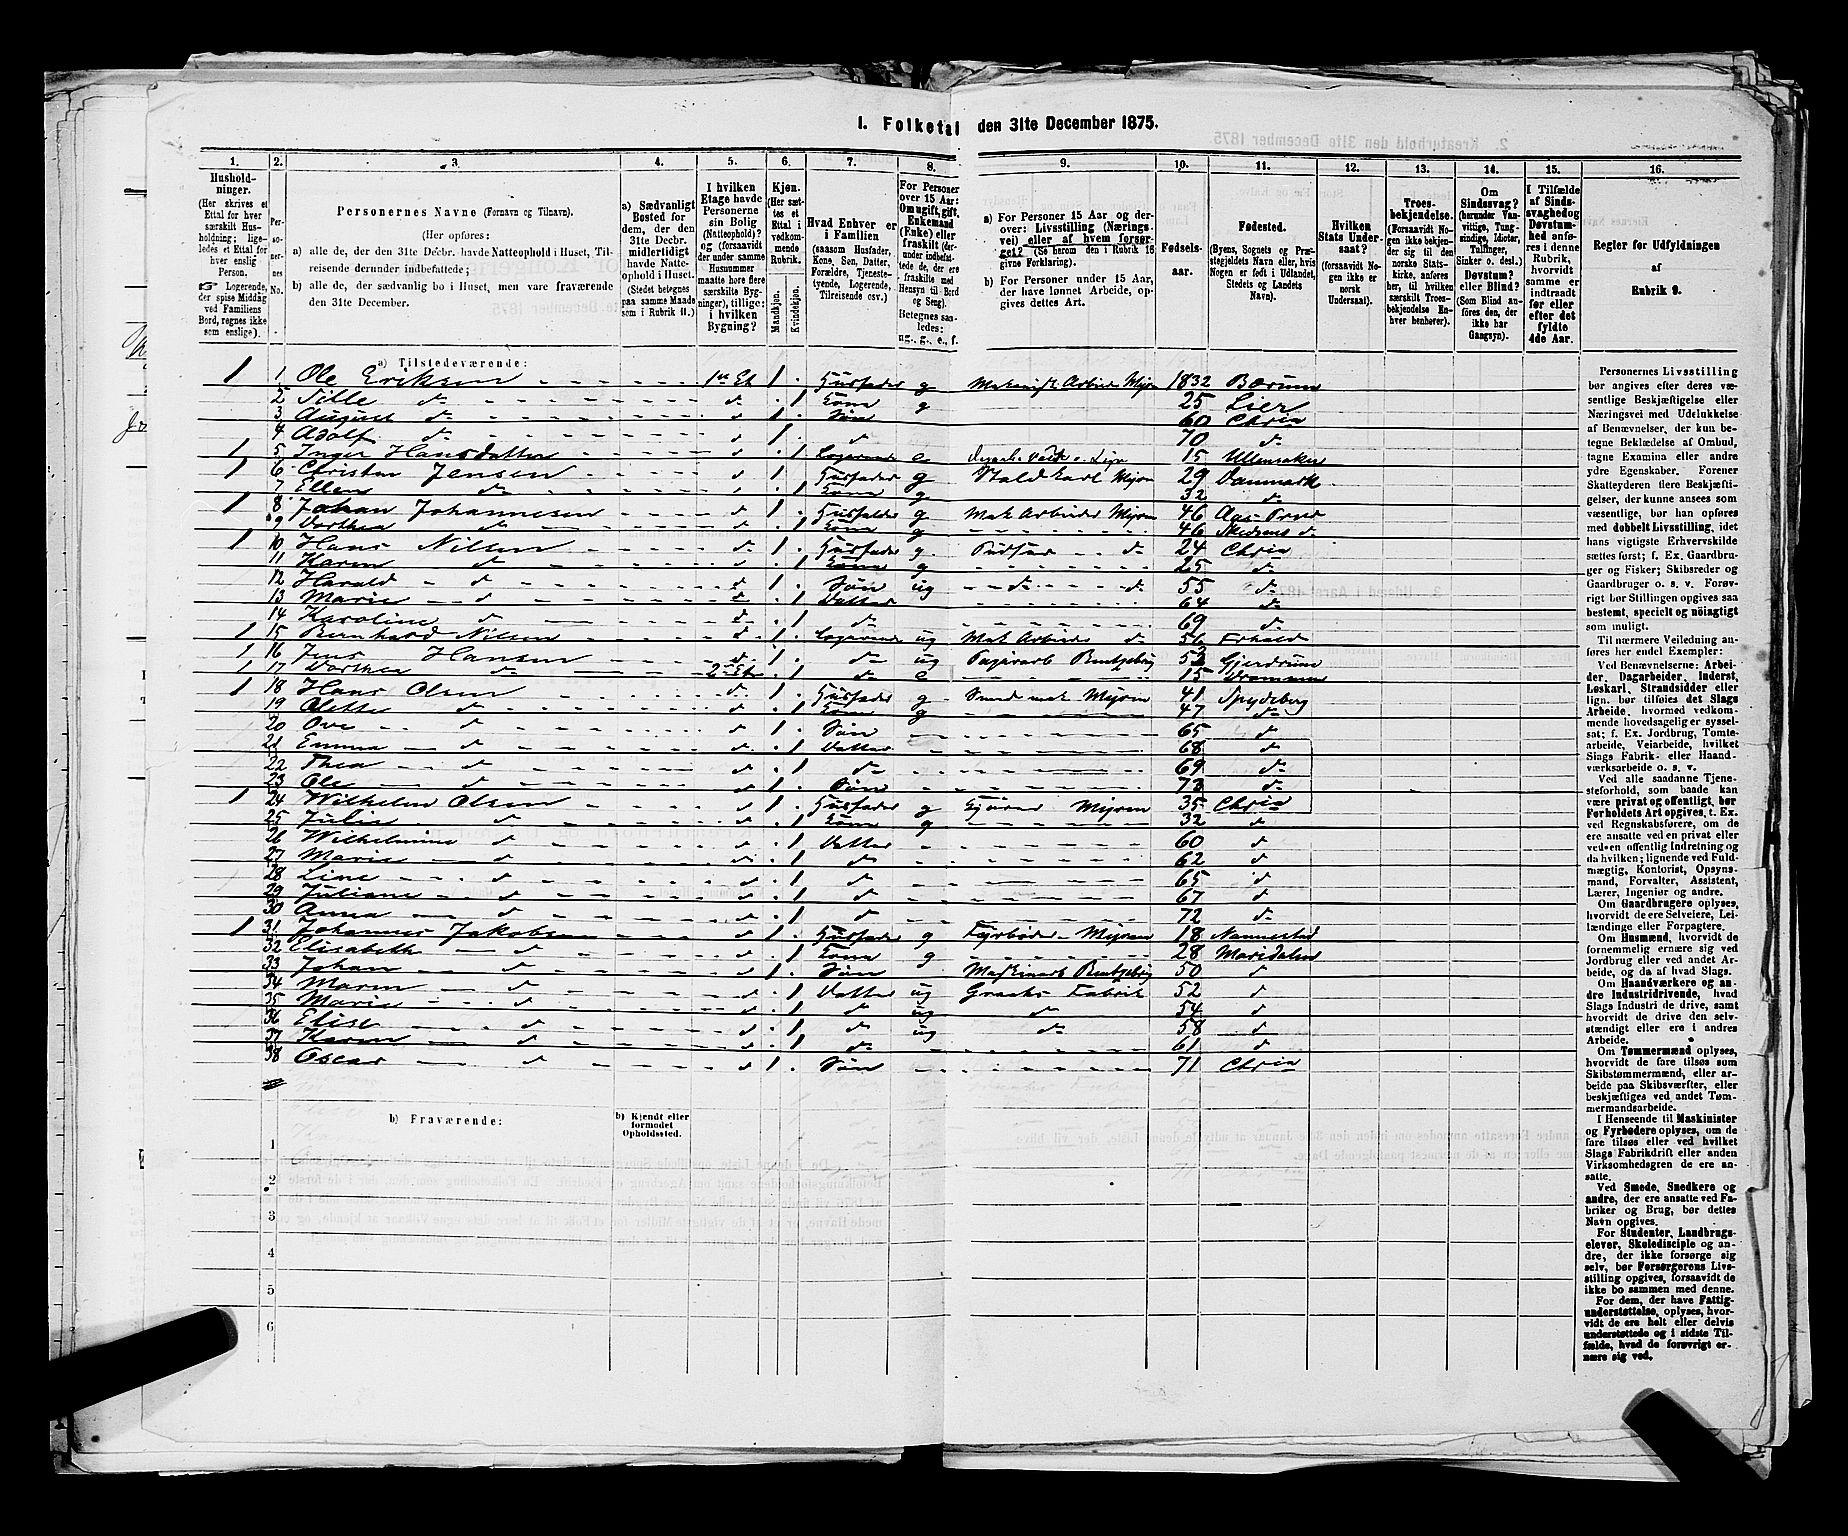 I. Folketal den 31te December 1875.
1. 2. 3. 4. 5. 6. 7. 8. 9. 10. 11. 12. 13. 14. 15. 16.
Husholdninger. (Her skrives et Ettal for hver særskilt Husholdning; ligeledes et Ettal for hver enslig Person. Logerende, der spise Middag ved Familiens Bord, regnes ikke som enslige).
Personernes No.
Personernes Navne (Fornavn og Tilnavn).
(Her opføres:
a) alle de, der den 31te Decbr. havde Natteophold i Huset, Tilreisende derunder indbefattede;
b) alle de, der sædvanlig bo i Huset, men vare fraværende den 31te December.
a) Sædvanligt Bosted for dem, der den 31te Decbr. midlertidigt havde Natteophold i Huset. (Stedet betegnes paa samme Maade som i Rubrik 11.)
I hvilken Etage havde Personerne sin Bolig (Natteophold)? og (forsaavidt der under samme Husnummer maatte høre flere særskilte Bygninger), tillige: i hvilken Bygning?
Kjøn. (Her sættes et Ettal i vedkommende Rubrik. Mandkjøn. Kvindekjøn.
Hvad Enhver er i Familien (saasom Husfader, Kone, Søn, Datter, Forældre, Tjenestetyende, Logerende, Tilreisende osv.)
For Personer over 15 Aar: Om ugift, gift, Enkemand (Enke) eller fraskilt (derunder indbefattede de, der ere fraskilte med Hensyn til Bord og Seng). Betegnes saaledes: ug., g., e., f.
a) For Personer 15 Aar og derover: Livsstilling (Næringsvei) eller af hvem forsørget? (Se herom den i Rubrik 16 givne Forklaring).
b) For Personer under 15 Aar, der have lønnet Arbeide, opgives dettes Art.
Fødselsaar.
Fødested. (Byens, Sognets og Præstegjeldets Navn eller, hvis Nogen er født i Udlandet, Stedets og Landets Navn).
Hvilken Stats Undersaat? (forsaavidt Nogen ikke er norsk Undersaat).
Troesbekjendelse. (Forsaavidt Nogen ikke bekjender sig til den norske Statskirke, anføres her, til hvilken særskilt Troesbekjendelse Enhver benhører).
Om Sindssvag? (herunder Vanvittige, Tungsindige, Idioter, Tullinger, Sinker o. desl.) Døvstum? eller Blind? (Som Blind anføres den, der ikke har Gangsyn).
I Tilfælde af Sindssvaghed og Døvstumhed anføres i denne Rubrik, hvorvidt samme er indtraadt før eller efter det fyldte 4de Aar.
Regler for Udfyldningen af Rubrik 9.
a) Tilstedeværende:
1 1 Ole Eriksen 1ste Et 1 Husfader g Myren 1832 Bærum
2 d 1 Kone g 25 Lier
3 August d 1 Søn 60 Chria
4 Adolf d 1 d 70 d
1 5 Inger Hansdatter 1 Logerende e 15 Ullensaker
1 6 Christen Jensen 1 Husfader g Staldkarl Myren 29 Danmark
7 Ellen d 1 Kone g 32 d
1 8 Johan Johannesen 1 Husfader g Mek Arbeider Myren 46
9 Dorthea d 1 Kone g 46
1 10 Hans Nilsen d 1 Husfader g d 24 Chria
11 Karen d 1 Kone g 25 d
12 Harald d 1 Søn ug d d 55 d
13 Marie d 1 Datter 64 d
14 Karoline d 1 d 69 d
1 15 Bernhard Nilsen d 1 Logerende ug Mek Arbeider d 56
1 16 Jens Hansen d 1 d ug 53 Gjerdrum
1 17 Dorthea d 2 Et 1 d e 15 Drammen
1 18 Hans Olsen d 1 Husfader g Myren 41 Spydeberg
19 d 1 Kone g 47 d
20 Ove d 1 Søn 65 d
21 Emma d 1 Datter 68 d
22 Thea d 1 d 69 d
23 Ole d 1 Søn 73 d
1 24 Wilhelm Olsen 1 Husfader g Myren 35 Chria
25 Julie d 1 Kone g 32 d
26 Wilhelmine d 1 Datter 60 d
27 Marie d 1 d 62 d
28 Line d 1 d 65 d
29 Juliane d 1 d 67 d
30 Anna d 1 d 72 d
1 31 Johannes Jakobsen d 1 Husfader g Fyrbøder Myren 18 Nannestad
32 Elisabeth d 1 Kone g 28 Maridalen
33 Johan d 1 Søn 50 d
34 Maren d 1 Datter ug Graahs Fabrik 52 d
35 Marie d 1 d ug d 54 d
36 Elise d 1 d ug d 58 d
37 Karen d 1 d 61 d
38 Oscar d 1 Søn 71 Chria
b) Fraværende:
b) Kjendt eller formodet Opholdssted.
1
2
3
4
5
6
Personernes Livsstilling bør angives efter deres væsentlige Beskjæftigelse eller Næringsvei med Udelukkelse af Benævnelser, der kun betegne Beklædelse af Ombud, tagne Examina eller andre ydre Egenskaber. Forener Skatteyderen flere Beskjæftigelser, der kunne ansees som væsentlige, bør han opføres med dobbelt Livsstilling, idet hans vigtigste Erhvervskilde sættes først; f. Ex. Gaardbruger og Fisker; Skibsreder og Gaardbruger o. s. v. Forøvrigt bør Stillingen opgives saa bestemt, specielt og nöiagtigt som muligt.
Til nærmere Veiledning anføres her endel Exempler:
Ved Benævnelserne: Arbeider, Dagarbeider, Inderst, Løskarl, Strandsidder eller lign. bør tilføies det Slags Arbeide, hvormed vedkommende hovedsagelig er sysselsat; f. Ex. Jordbrug, Tomtearbeide, Veiarbeide, hvilket Slags Fabrik- eller Haandværksarbeide o. s. v.
Ved alle saadanne Tjenesteforhold, som baade kan være privat og offentligt, bør Forholdets Art opgives, t. Ex. ved Regnskabsførere, om de ere ansatte ved en privat eller ved en offentlig Indretning og da hvilken; lignende ved Fuldmægtig, Kontorist, Opsynsmand, Forvalter, Assistent, Lærer, Ingeniør og andre.
Om Gaardbrugere oplyses, hvorvidt de ere Selveiere, Leilændinge eller Forpagtere.
Om Husmænd, hvorvidt de fornemmelig ernære sig ved Jordbrug eller ved andet Arbeide, og da af hvad Slags.
Om Haandværkere og andre Industridrivende, hvad Slags Industri de drive, samt hvorvidt de drive den selvstændigt eller ere i andres Arbeide.
Om Tømmermænd oplyses, hvorvidt de fare tilsøs som Skibstømmermænd, eller arbeide paa Skibsværfter, eller beskjæftiges ved andet Tømmermandsarbeide.
I Henseende til Maskinister og Fyrbødere oplyses, om de fare tilsøs eller ved hvilket Slags Fabrikdrift eller anden Virksomhedsgren de ere ansatte.
Ved Smede, Snedkere og andre, der ere ansatte ved Fabriker og Brug, bør dettes Navn opgives.
For Studenter, Landbrugselever, Skoledisciple og andre, der ikke forsørge sig selv, bør Forsørgerens Livsstilling opgives, forsaavidt de ikke bo sammen med denne.
For dem, der have Fattigunderstøttelse, oplyses, hvorvidt de ere helt eller delvis understøttede og i sidste Tilfælde, hvad de forøvrigt ernære sig ved.